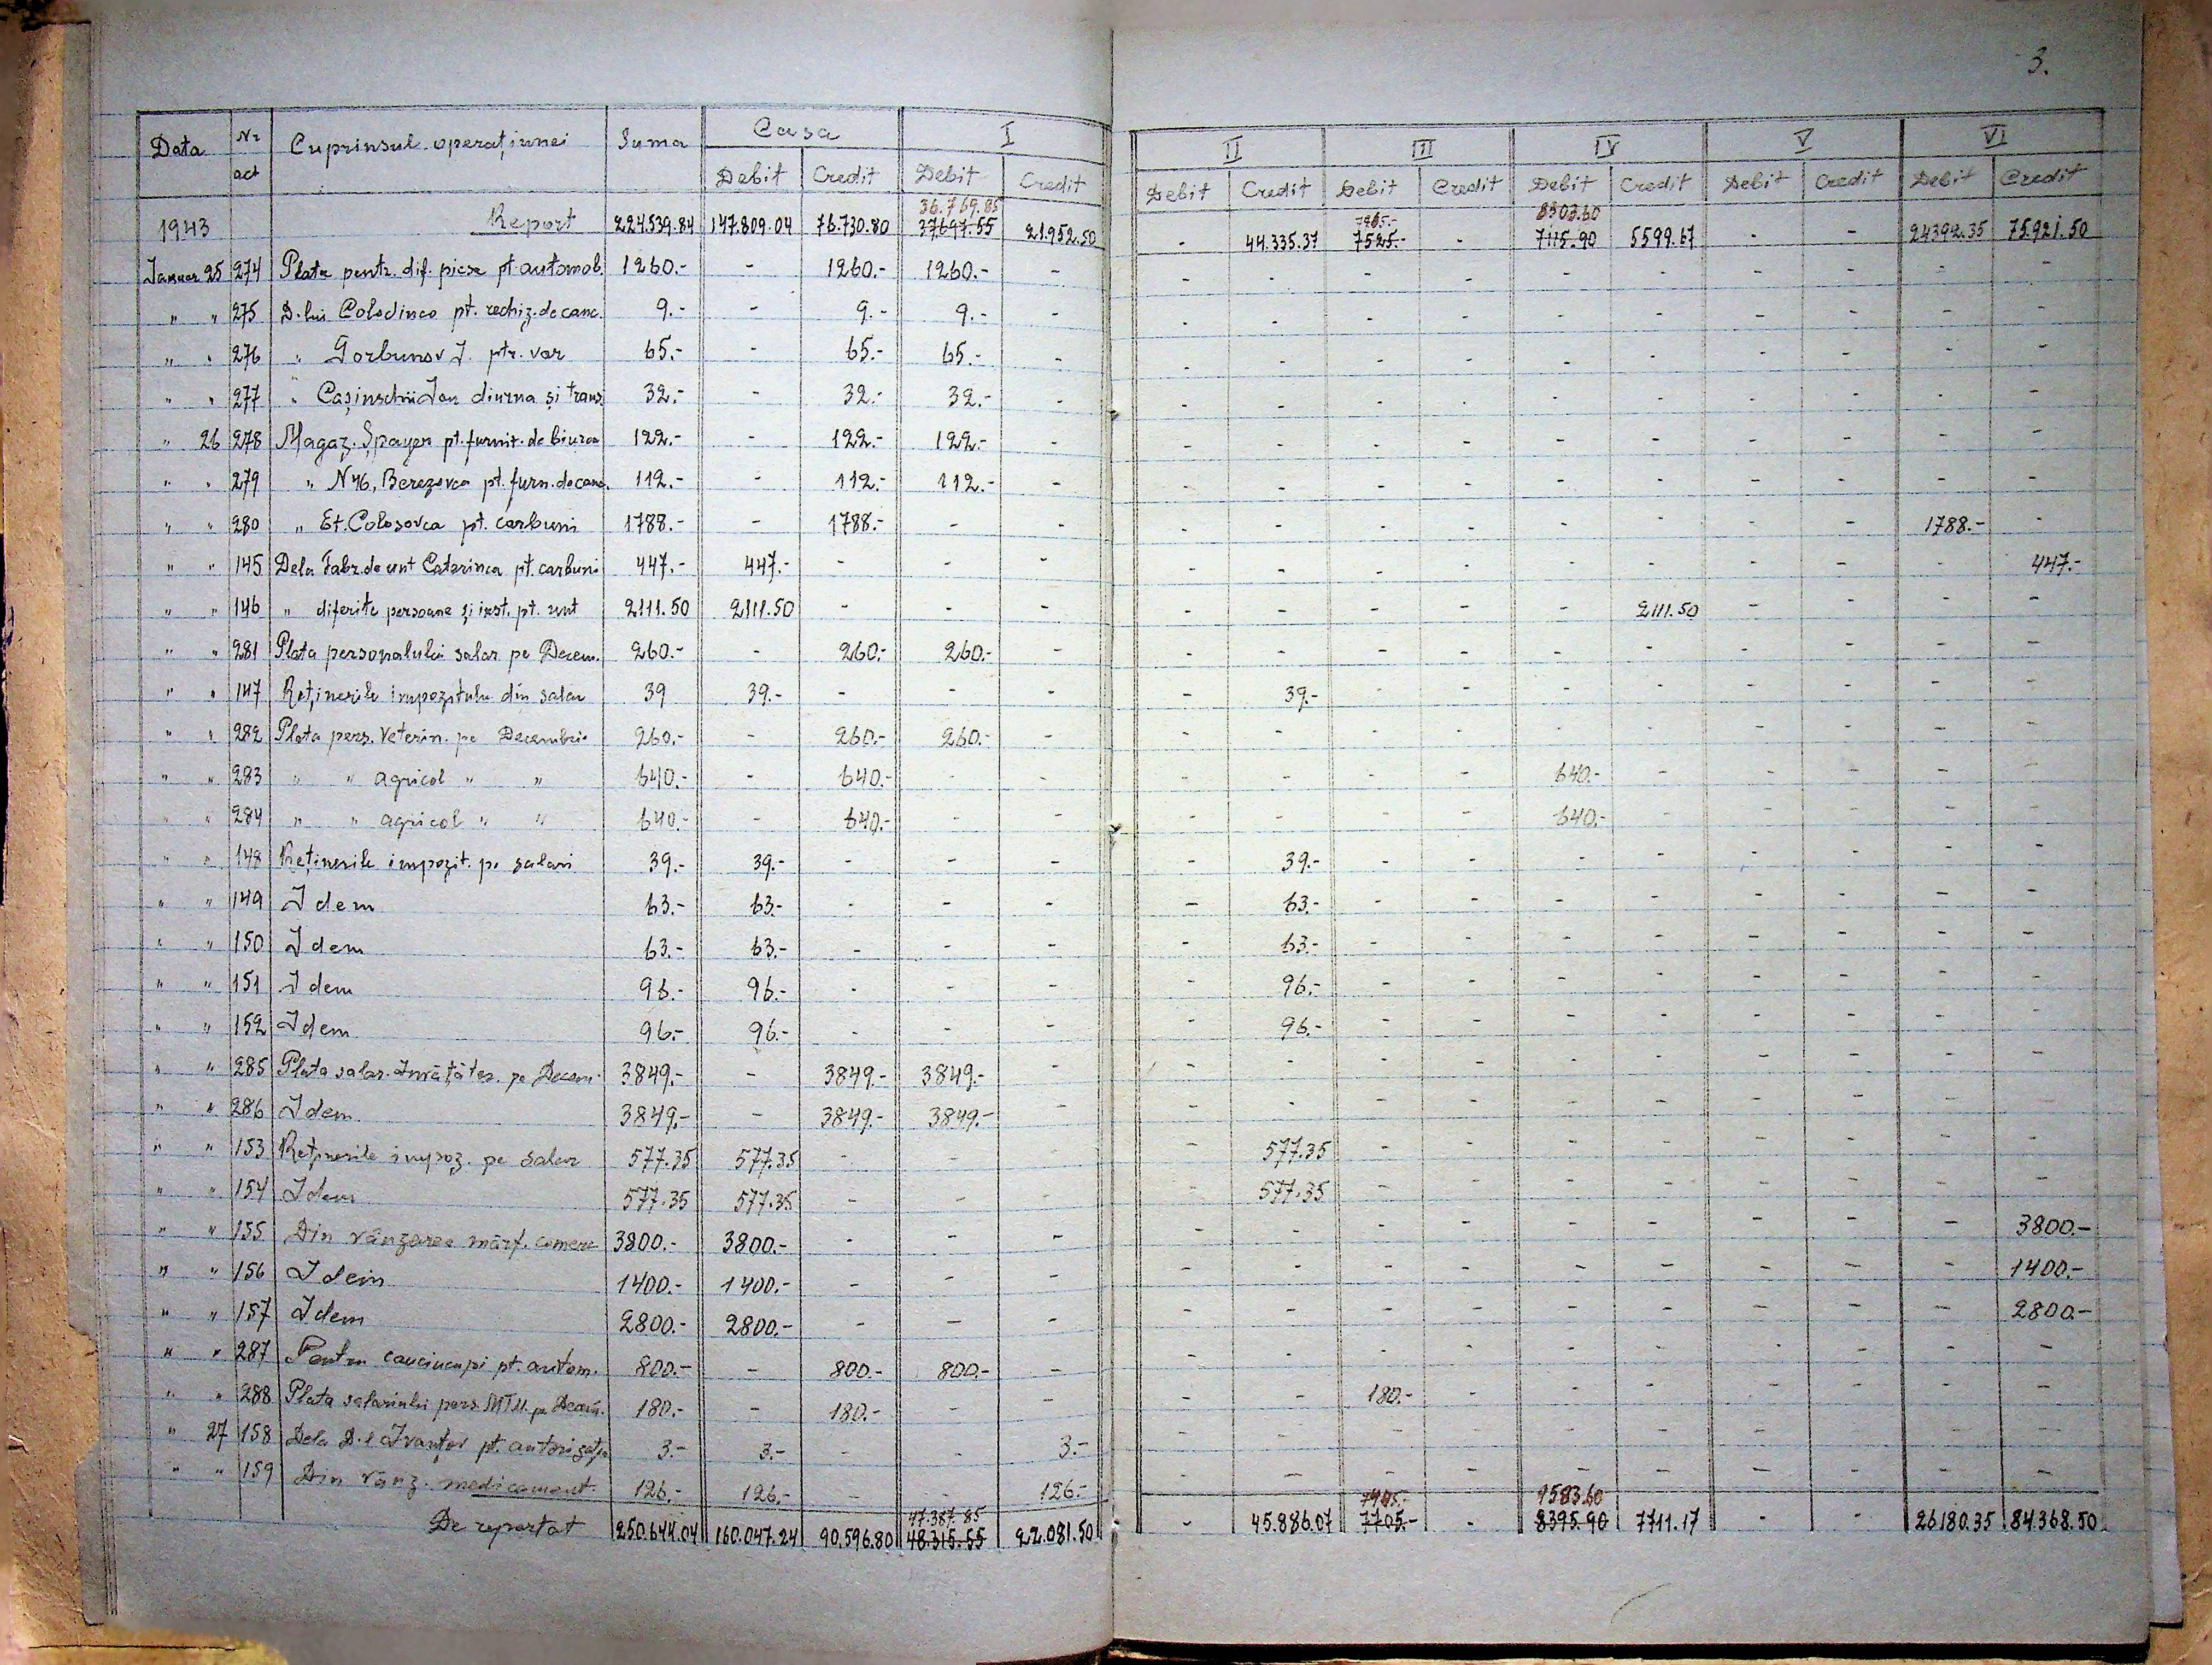 3.
Data Nr act Cuprinsul operațiunei Suma Casa Debit Credit I Debit Credit II Debit Credit III Debit Credit IV Debit Credit V Debit Credit VI Debit Credit
36.769.85 8303.60
1943 Report 224.539.84 147.809.04 76.730.80 37697.55 21.952.50 - 44.335.37 7525.- - 7115.90 5599.67 - - 24392.35 75.921.50
Januar 25 274 Plata pentr. dif. piese pt. automob. 1260.- - 1260.- 1260.- - - - - - - - - - - -
" " 275 D-lui Colodinco pt. rechiz. de canc. 9.- - 9.- 9.- - - - - - - - - - - -
" " 276 " Gorbunov J. ptr. var 65.- - 65.- 65.- - - - - - - - - - - -
" " 277 " Cașinschii Ion diurna și trans. 32.- - 32.- 32.- - - - - - - - - - - -
" 26 278 Magaz. Șpayer pt. furnit. de biurou 122.- - 122.- 122.- - - - - - - - - - - -
" " 279 " N 46, Berezovca pt. furn. de canc. 112.- - 112.- 112.- - - - - - - - - - - -
" " 280 " Et. Colosovca pt. carbuni 1788.- - 1788.- - - - - - - - - - - 1788.- -
" " 145 Dela Fabr. de unt Caterinca pt. carbuni 447.- 447.- - - - - - - - - - - - - 447.-
" " 146 " diferite persoane și inst. pt. unt 2111.50 2111.50 - - - - - - - - 2111.50 - - - -
" " 281 Plata personalului salar pe Decem. 260.- - 260.- 260.- - - - - - - - - - - -
" " 147 Reținerile impozitului din salar 39 39.- - - - - 39.- - - - - - - - -
" " 282 Plata pers. Veterin. pe Decembrie 260.- - 260.- 260.- - - - - - - - - - - -
" " 283 " " agricol " " 640.- - 640.- - - - - - - 640.- - - - - -
" " 284 " " agricol " " 640.- - 640.- - - - - - - 640.- - - - - -
" " 148 Reținerile impozit. pe salari 39.- 39.- - - - - 39.- - - - - - - - -
" " 149 Idem 63.- 63.- - - - - 63.- - - - - - - - -
" " 150 Idem 63.- 63.- - - - - 63.- - - - - - - - -
" " 151 Idem 96.- 96.- - - - - 96.- - - - - - - - -
" " 152 Idem 96.- 96.- - - - - 96.- - - - - - - - -
" " 285 Plata salar. Învățător. pe Decem. 3849.- - 3849.- 3849.- - - - - - - - - - - -
" " 286 Idem 3849.- - 3849.- 3849.- - - - - - - - - - - -
" " 153 Reținerile impoz. pe salar 577.35 577.35 - - - - 577.35 - - - - - - - -
" " 154 Idem 577.35 577.35 - - - - 577.35 - - - - - - - -
" " 155 Din vânzarea mărf. comerc 3800.- 3800.- - - - - - - - - - - - - 3800.-
" " 156 Idem 1400.- 1400.- - - - - - - - - - - - - 1400.-
" " 157 Idem 2800.- 2800.- - - - - - - - - - - - - 2800.-
" " 287 Pentru cauciucuri pt. autom. 800.- - 800.- 800.- - - - - - - - - - - -
" " 288 Plata salariului pers. pe Decem. 180.- - 180.- - - - - 180.- - - - - - - -
" 27 158 Dela D-l Ivanțov pt. autorizație 3.- 3.- - - 3.- - - - - - - - - - -
" " 159 Din vânz. medicament. 126.- 126.- - - 126.- - - - - - - - - - -
47.387.85 9583.60
De reportat 250.644.04 160.047.24 90.596.80 48.315.55 22.081.50 - 45.886.07 7705.- - 8395.90 7711.17 - - 26180.35 84.368.50